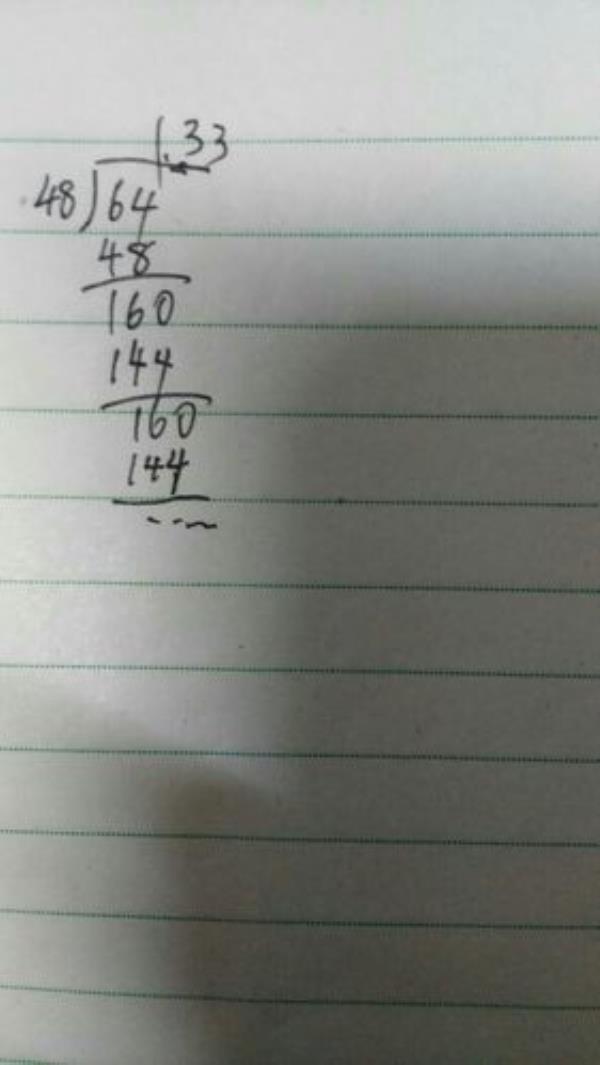 1.33
48)64
48
160
144
160
144
...